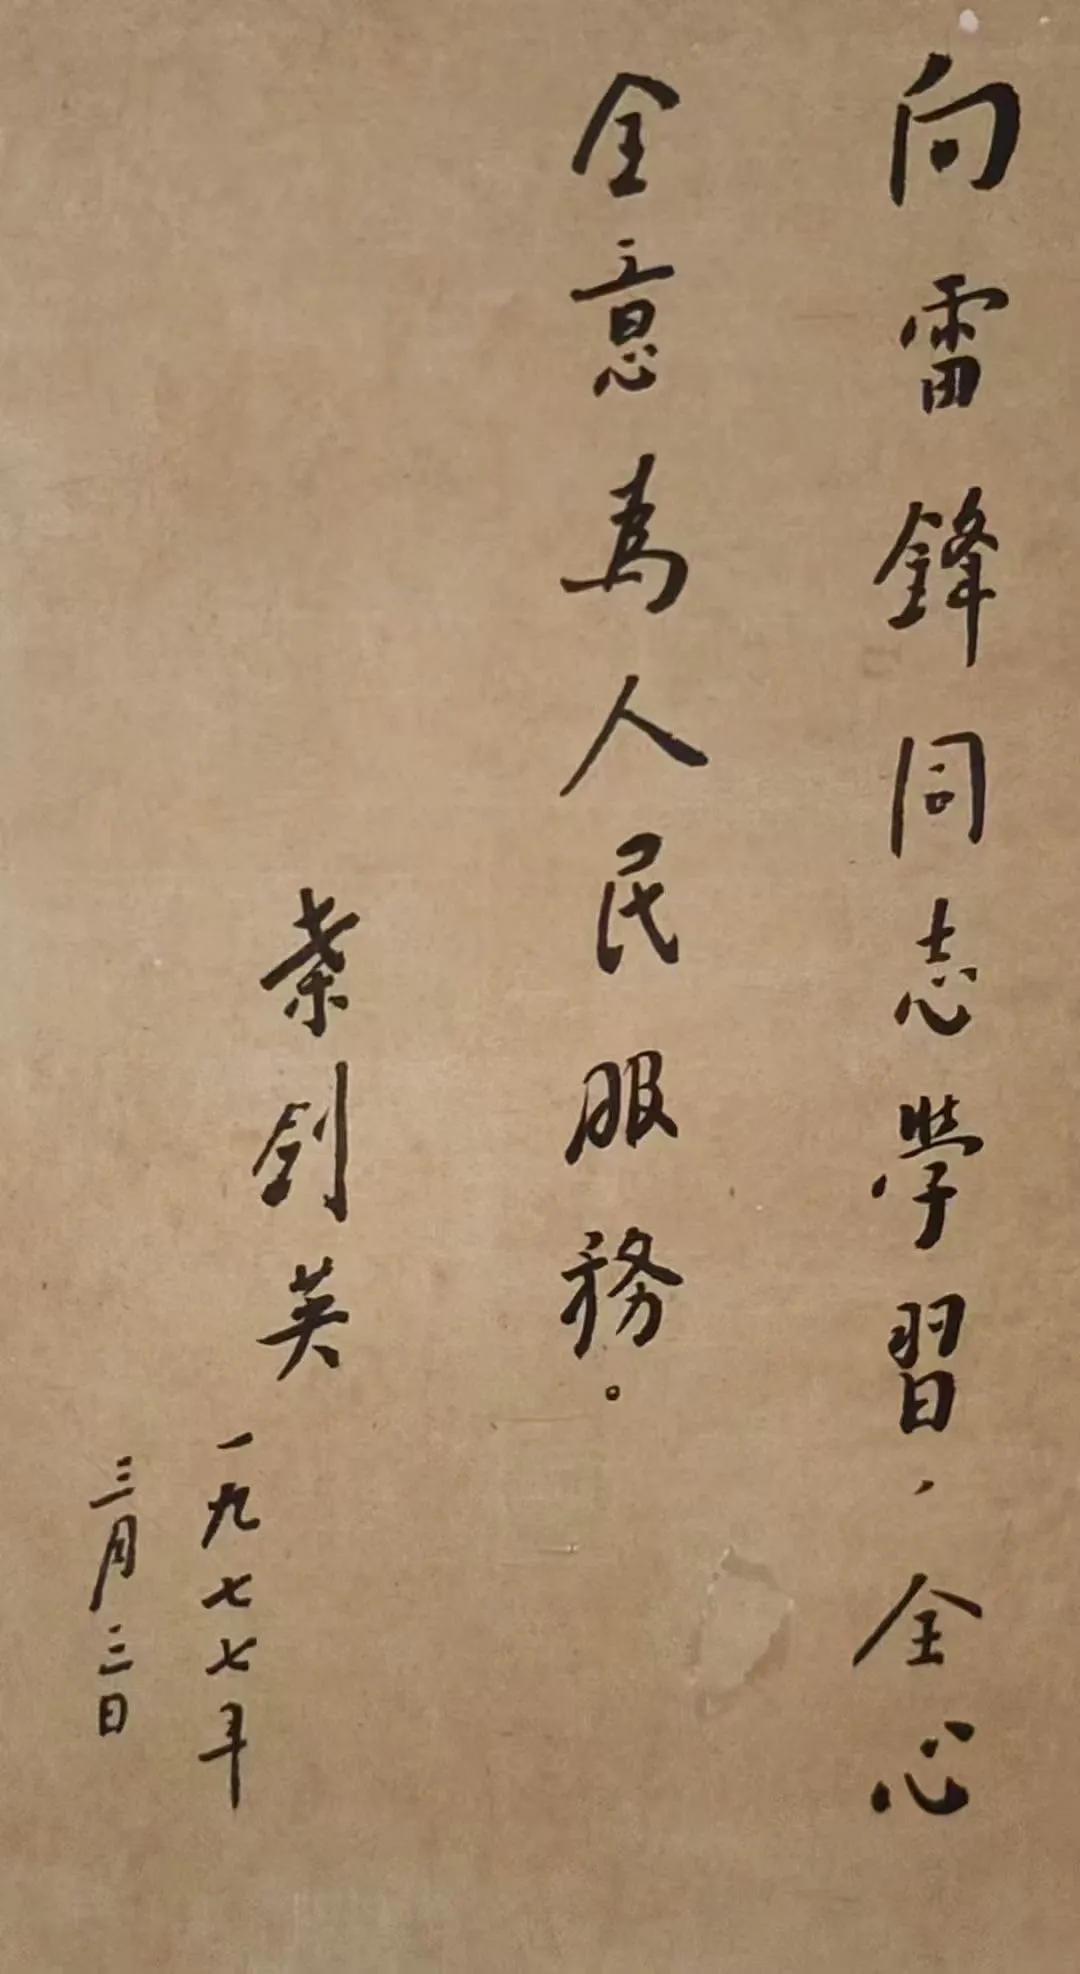 向雷鋒同志學習，全心
全意為人民服務。
葉剑英
一九七七年
三月三日